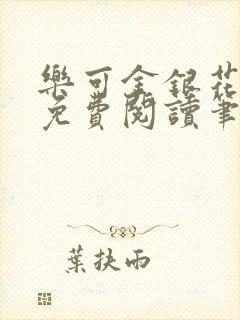 樂可金銀花
免費閱讀筆
葉扶雨